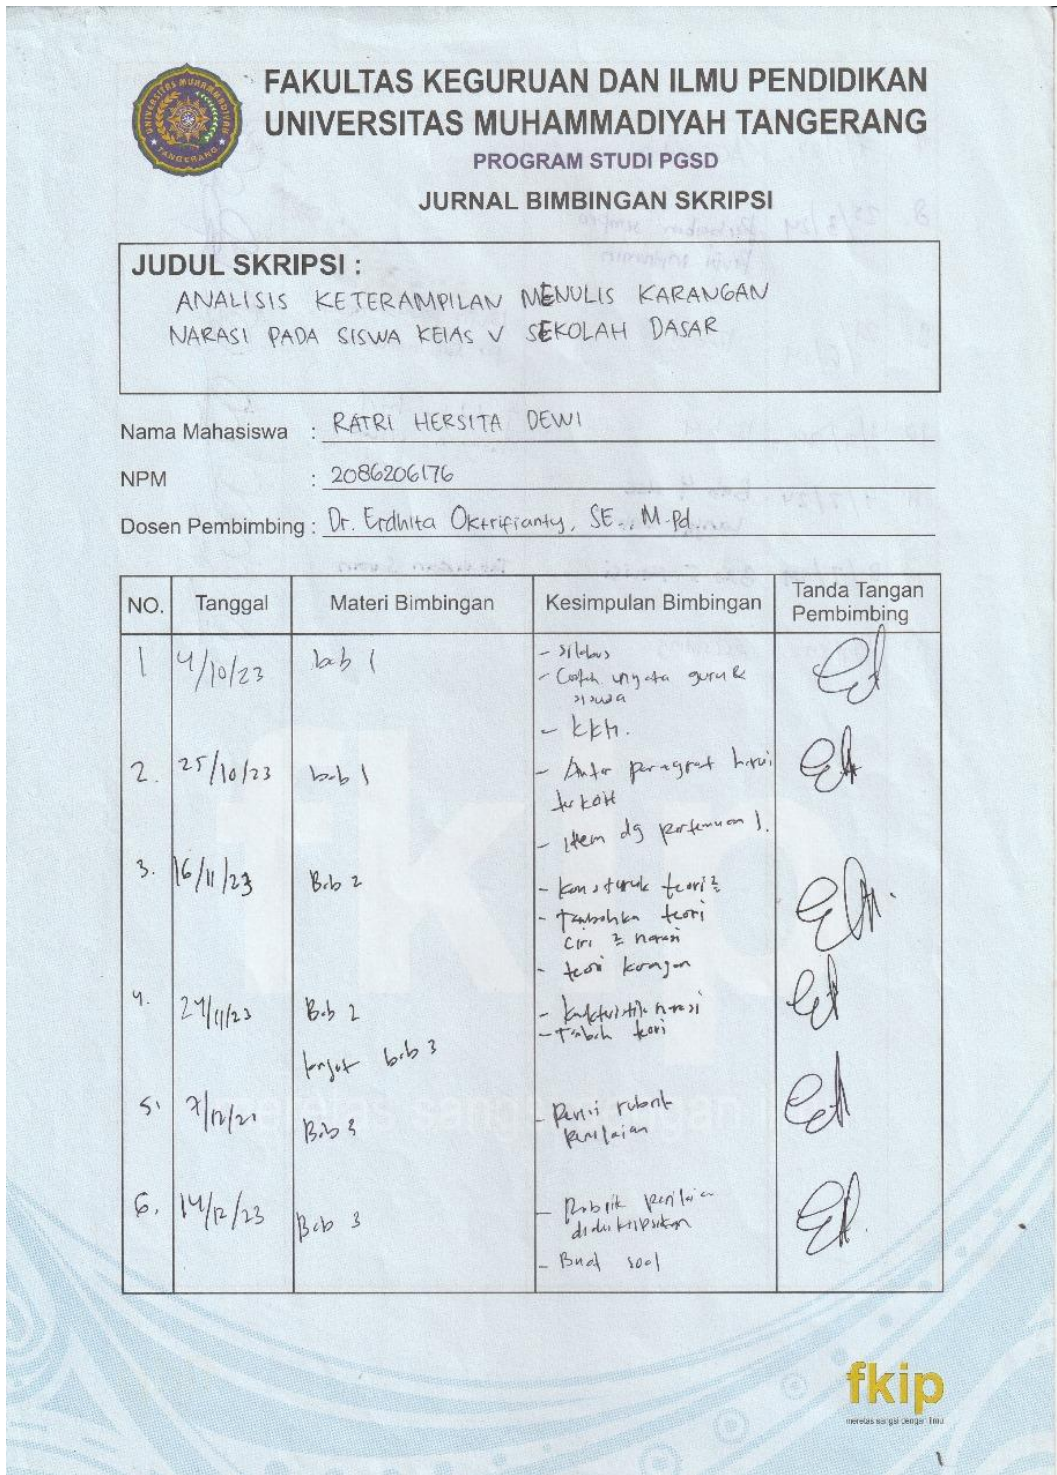 FAKULTAS KEGURUAN DAN ILMU PENDIDIKAN
UNIVERSITAS MUHAMMADIYAH TANGERANG
PROGRAM STUDI PGSD
JURNAL BIMBINGAN SKRIPSI
JUDUL SKRIPSI :
ANALISIS KETERAMPILAN MENULIS KARANGAN
NARASI PADA SISWA KElAS V SEKOLAH DASAR
Nama Mahasiswa : RATRI HERSITA DEWI
NPM : 2086206176
Dosen Pembimbing : Dr. Erdhita Oktrifianty, SE., M.Pd.
NO. Tanggal Materi Bimbingan Kesimpulan Bimbingan Tanda Tangan
Pembimbing
1 4/10/23 bab 1 - silabus
- guru &
siswa
- KKM.
2. 25/10/23 bab 1 - Antar paragraf
- item dg pertemuan 1.
3. 16/11/23 Bab 2 - teori 2
- Tambahka teori
ciri 2 narasi
- teori karangan
4. 24/11/23 Bab 2 - narasi
- Tambah teori
lanjut bab 3
5. 7/12/23 Bab 3 - Revisi rubrik
penilaian
6. 14/12/23 Bab 3 - Rubrik penilaian
- Buat soal
fkip
meretas sangai dengan Ilmu
1